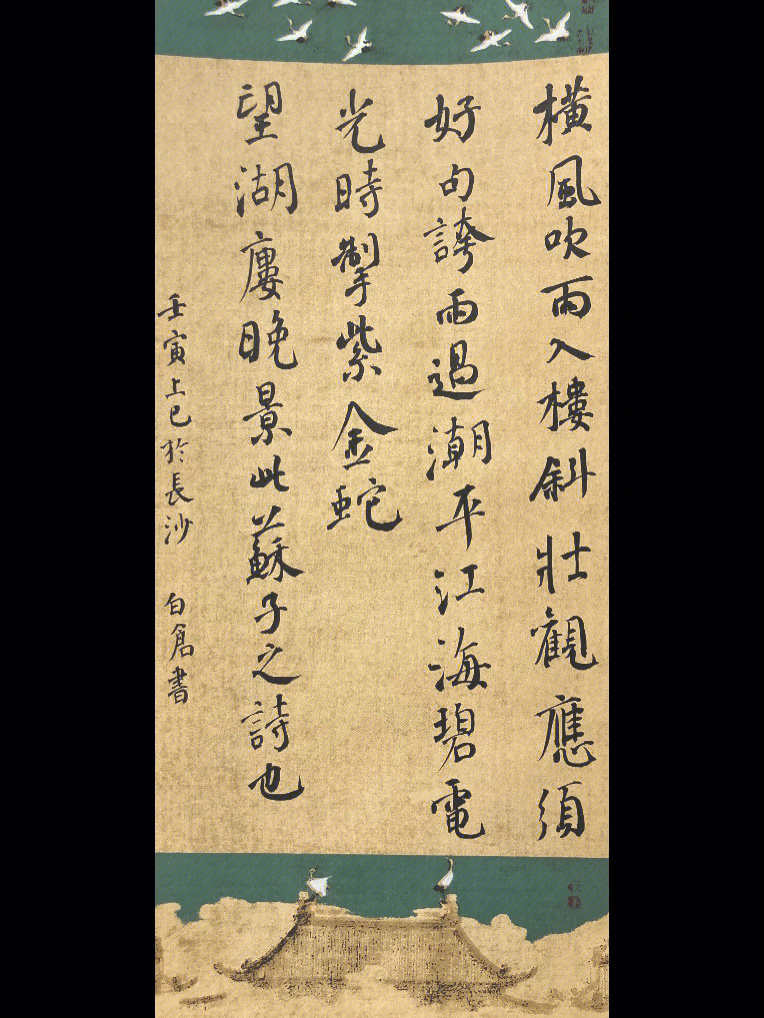 橫風吹雨入樓斜壯觀應須
好句誇雨過潮平江海碧電
光時掣紫金蛇
望湖廔晚景此蘇子之詩也
壬寅上巳於長沙 白倉書